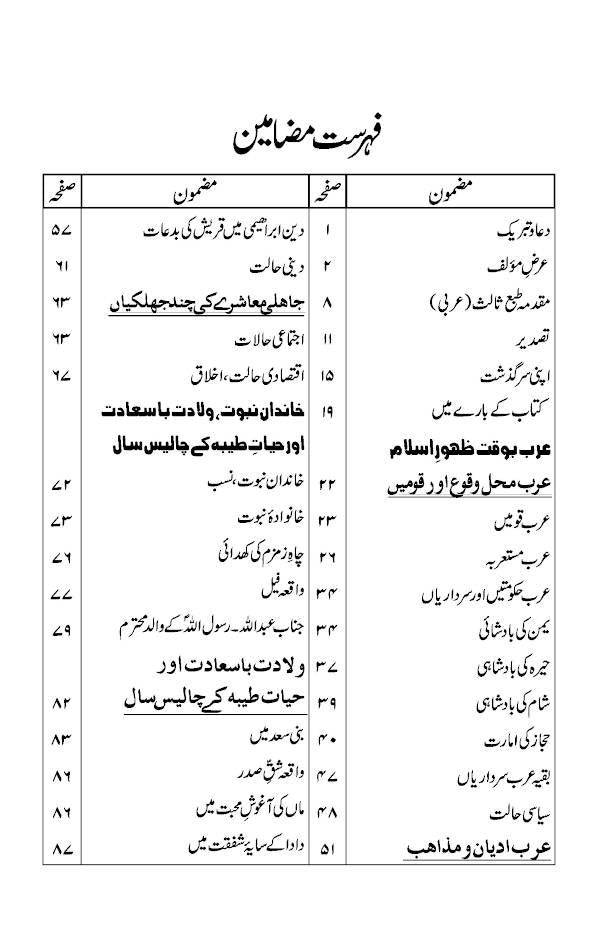 فہرست مضامین
مضمون صفحہ
دعا و تبریک ۱
عرضِ مؤلف ۲
مقدمہ طبع ثالث (عربی) ۸
تصدیر ۱۱
اپنی سرگذشت ۱۵
کتاب کے بارے میں ۱۹
عرب بوقت ظہورِ اسلام
عرب محل وقوع اور قومیں ۲۲
عرب قومیں ۲۳
عرب مستعربہ ۲۶
عرب حکومتیں اور سرداریاں ۳۴
یمن کی بادشائی ۳۴
حیرہ کی بادشاہی ۳۷
شام کی بادشاہی ۳۹
حجاز کی امارت ۴۰
بقیہ عرب سرداریاں ۴۷
سیاسی حالت ۴۸
عرب ادیان و مذاہب ۵۱
مضمون صفحہ
دین ابراھیمی میں قریش کی بدعات ۵۷
دینی حالت ۶۱
جاھلی معاشرے کی چند جھلکیاں ۶۳
اجتماعی حالات ۶۳
اقتصادی حالت، اخلاق ۶۷
خاندان نبوت، ولادت باسعادت
اور حیاتِ طیبہ کے چالیس سال
خاندان نبوت، نسب ۷۲
خانوادۂ نبوت ۷۳
چاہِ زمزم کی کھدائی ۷۶
واقعہ فیل ۷۷
جناب عبداللہ۔ رسول اللہؐ کے والد محترم ۷۹
ولادت باسعادت اور
حیات طیبہ کے چالیس سال ۸۲
بنی سعد میں ۸۳
واقعہ شقِّ صدر ۸۶
ماں کی آغوشِ محبت میں ۸۶
دادا کے سایۂ شفقت میں ۸۷